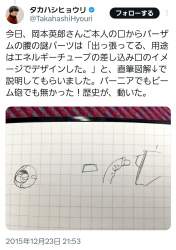 タカハシヒョウリ
@TakahashiHyouri
フォローする
今日、岡本英郎さんご本人の口からバーザ
ムの腰の謎パーツは「出っ張ってる、用途
はエネルギーチューブの差し込み口のイメ
ージでデザインした。」と、直筆図解↓で
説明してもらいました。バーニアでもビー
ム砲でも無かった！歴史が、動いた。
2015年12月23日 21:53